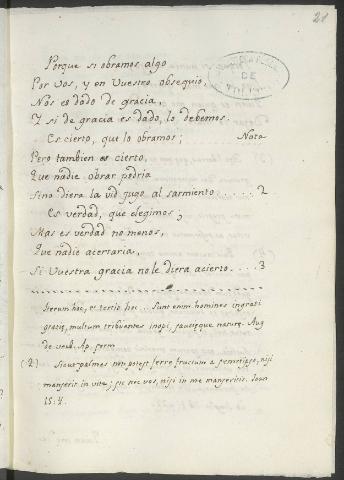 28
Porque si obramos algo
Por vos, y en Vuestro obsequio,
Nos es dado de gracia,
Y si de gracia es dado, lo debemos.
Es cierto, que lo obramos; Nota
Pero tambien es cierto,
Que nadie obrar podria
Sino diera la vid jugo al sarmiento...... 2
Es verdad, que elegimos;
Mas es verdad no menos,
Que nadie acertaria,
Si Vuestra gracia no le diera acierto.... 3
Iterum hoc, et tertio hoc... Sunt enim homines ingrati
gratiæ, multum tribuentes inopi, sauciæque naturæ. Aug
de verb. Ap. serm
(2) Sicut palmes non potest ferre fructum a semetipso, nisi
manserit in vite; sic nec vos, nisi in me manseritis. Ioan
15. 4.